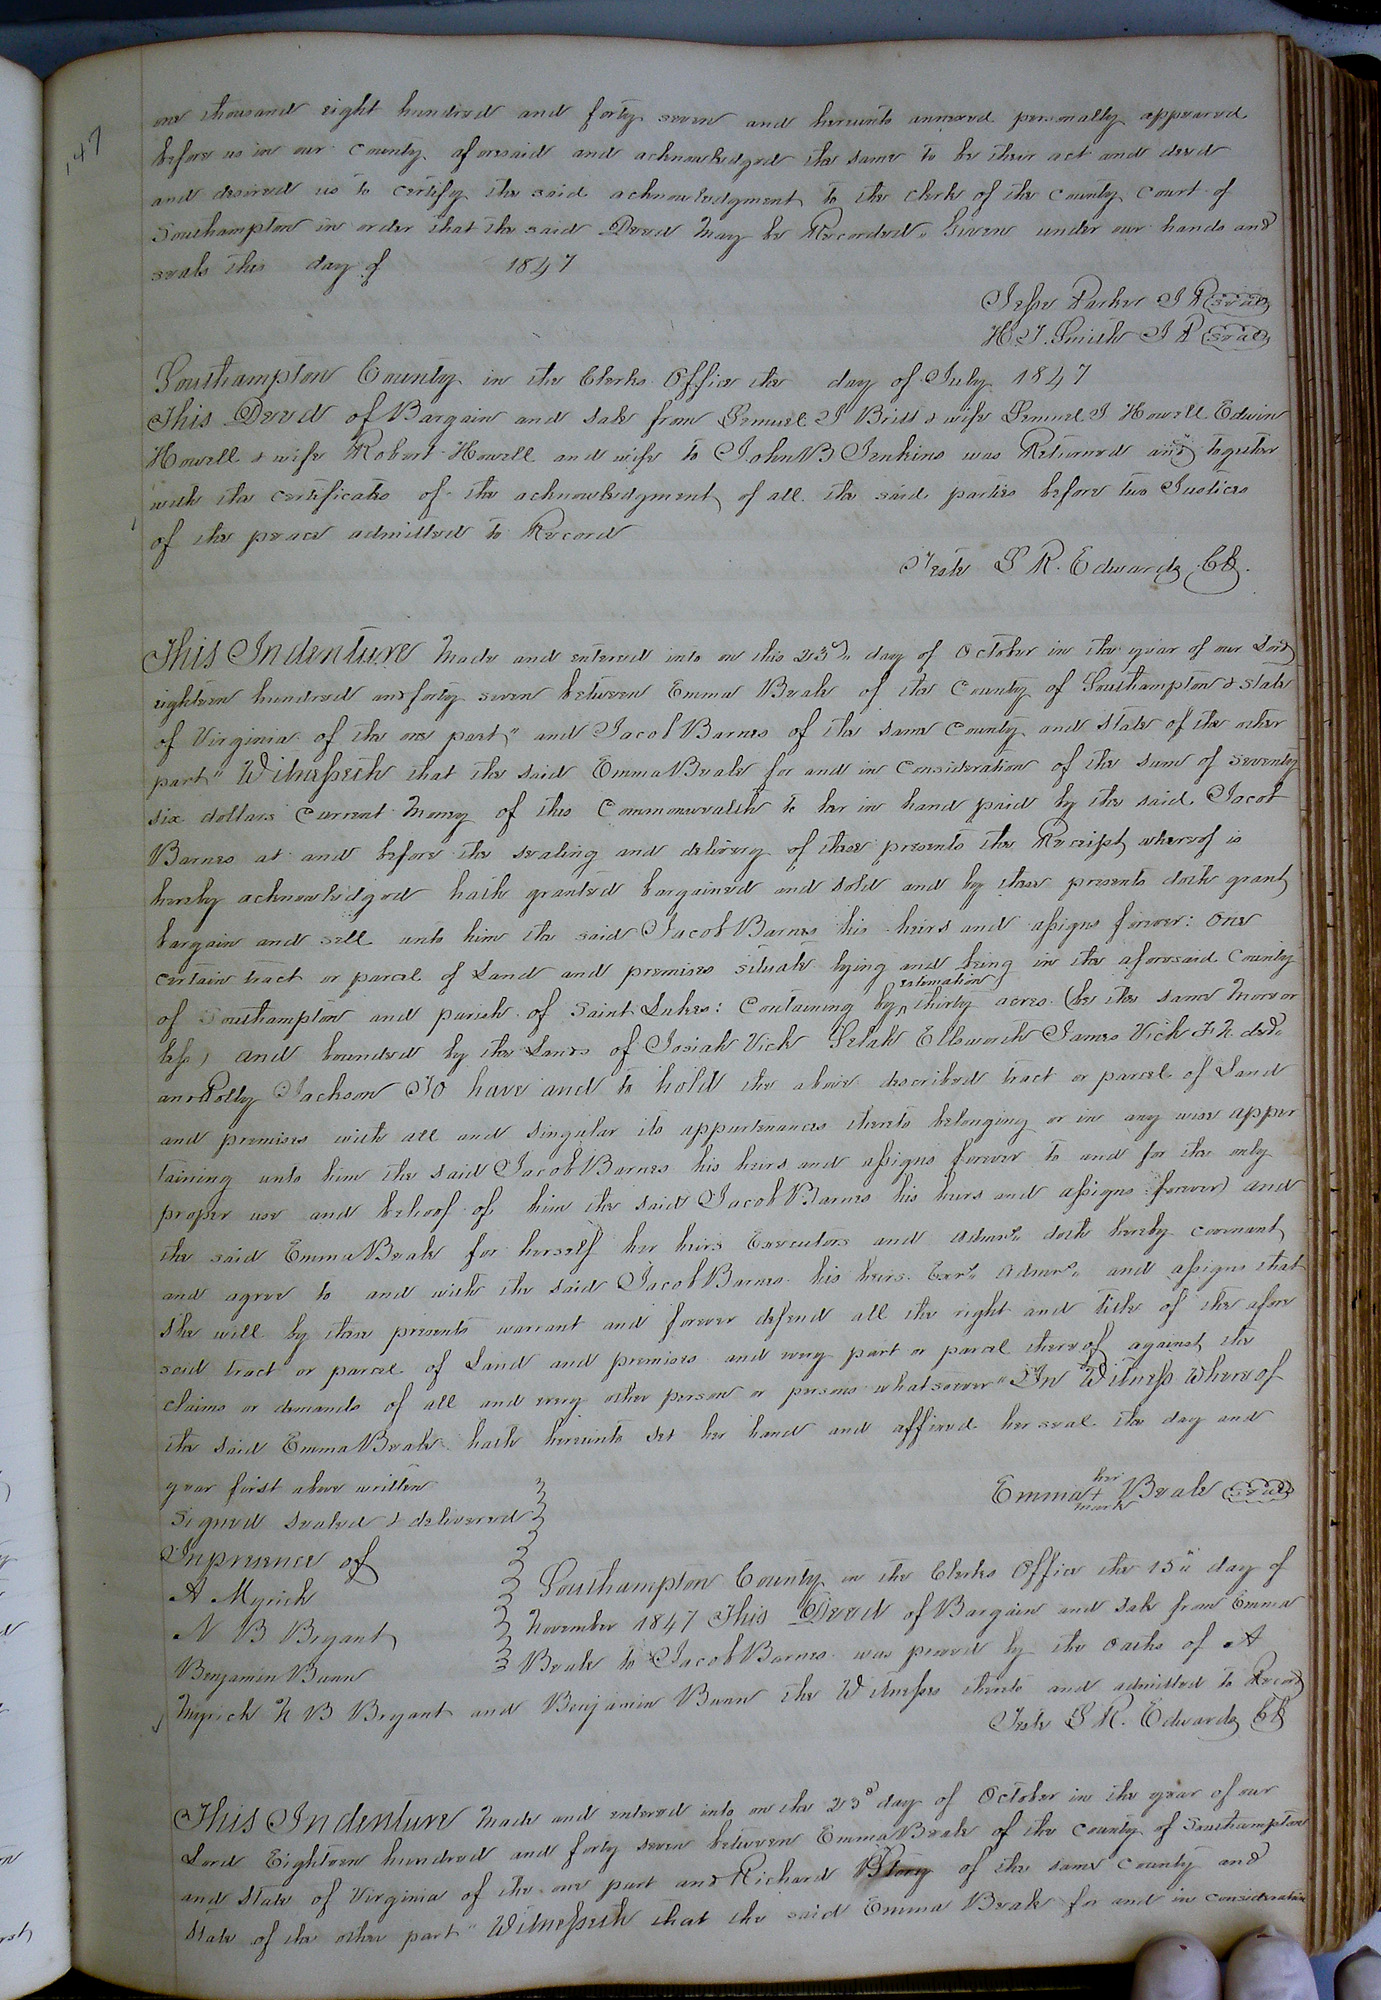 147
one thousand eight hundred and forty seven and hereunto annexed personally appeared
before us in our County aforesaid and acknowledged the same to be their act and deed
and desired us to certify the said acknowledgment to the Clerk of the County Court of
Southampton in order that the said Deed May be Recorded. Given under our hands and
seals this day of 1847
Jesse Parker J P Seal
H. T. Smith J P Seal
Southampton County in the Clerks Office the day of July 1847
This Deed of Bargain and Sale from Lemuel J Britt & wife Lemuel J Howell Edwin
Howell & wife Robert Howell and wife to John B Jenkins was Returned and together
with the certificates of the acknowledgment of all the said parties before two Justices
of the peace admitted to Record
Teste L R. Edwards Clk.
This Indenture Made and entered into on this 23d. day of October in the year of our Lord
eighteen hundred and forty seven between Emma Beale of the County of Southampton & State
of Virginia of the one part" and Jacob Barnes of the same County and State of the other
part" Witnesseth that the said Emma Beale for and in Consideration of the sum of seventy
six dollars Current Money of this Commonwealth to her in hand paid by the said Jacob
Barnes at and before the sealing and delivery of these presents the Receipt whereof is
hereby acknowledged hath granted bargained and sold and by these presents doth grant
bargain and sell unto him the said Jacob Barnes his heirs and assigns forever: One
certain tract or parcel of Land and premises situate lying and being in the aforesaid County
of Southampton and parish of Saint Lukes: Containing by estimation thirty acres (be the same More or
less) and bounded by the Lands of Josiah Vick Selah Ellsworth James Vick F N decd.
and Polly Jackson To have and to hold the above described tract or parcel of Land
and premises with all and singular its appurtenances thereto belonging or in any wise apper
taining unto him the said Jacob Barnes his heirs and assigns forever to and for the only
proper use and behoof of him the said Jacob Barnes his heirs and assigns forever) and
the said Emma Beale for herself her heirs Executors and Admors. doth hereby covenant
and agree to and with the said Jacob Barnes his heirs Exrs. Admors. and assigns that
She will by these presents warrant and forever defend all the right and title of the afore
said tract or parcel of Land and premises and every part or parcel thereof against the
claims or demands of all and every other person or persons whatsoever" In Witness Whereof
the said Emma Beale hath hereunto set her hand and affixed her seal the day and
year first above written
Emma her + mark Beale Seal
Signed Sealed & delivered
In presence of
A Myrick
N B Bryant
Benjamin Bunn
Southampton County in the Clerks Office the 15" day of
November 1847 This Deed of Bargain and Sale from Emma
Beale to Jacob Barnes was proved by the oaths of A
Myrick N B Bryant and Benjamin Bunn the Witnesses thereto and admitted to Record
Teste L R. Edwards Clk
This Indenture Made and entered into on the 23d day of October in the year of our
Lord Eighteen hundred and forty seven between Emma Beale of the County of Southampton
and State of Virginia of the one part and Richard Story of the same County and
State of the other part" Witnesseth that the said Emma Beale for and in consideration